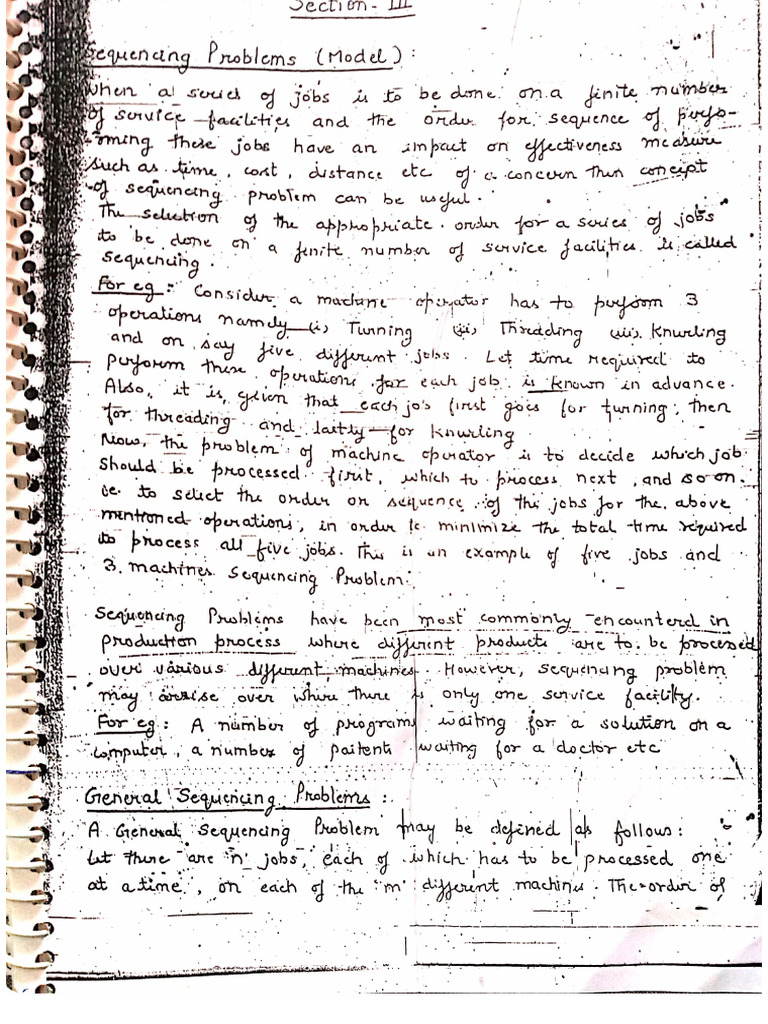 Section - III
Sequencing Problems (Model) :
When a series of jobs is to be done on a finite number
of service facilities and the order for sequence of perfo-
rming these jobs have an impact on effectiveness measure
such as time, cost, distance etc of a concern then concept
of sequencing problem can be useful.
The selection of the appropriate order for a series of jobs
to be done on a finite number of service facilities is called
sequencing.
For eg : Consider a machine operator has to perform 3
operations namely (i) Turning (ii) Threading (iii) Knurling
and on say five different jobs. Let time required to
perform these operations for each job is known in advance.
Also, it is given that each job first goes for turning, then
for threading and lastly for knurling
Now, the problem of machine operator is to decide which job
should be processed first, which to process next, and so on.
ie. to select the order or sequence of the jobs for the above
mentioned operations, in order to minimize the total time required
to process all five jobs. This is an example of five jobs and
3 machines Sequencing Problem.
Sequencing Problems have been most commonly encounterd in
production process where different products are to be processed
over various different machines. However, sequencing problem
may arise over where there is only one service facility.
For eg : A number of programs waiting for a solution on a
computer, a number of paitents waiting for a doctor etc
General Sequencing Problems :
A General Sequencing Problem may be defined as follows :
Let there are 'n' jobs, each of which has to be processed one
at a time, on each of the 'm' different machines. The order of